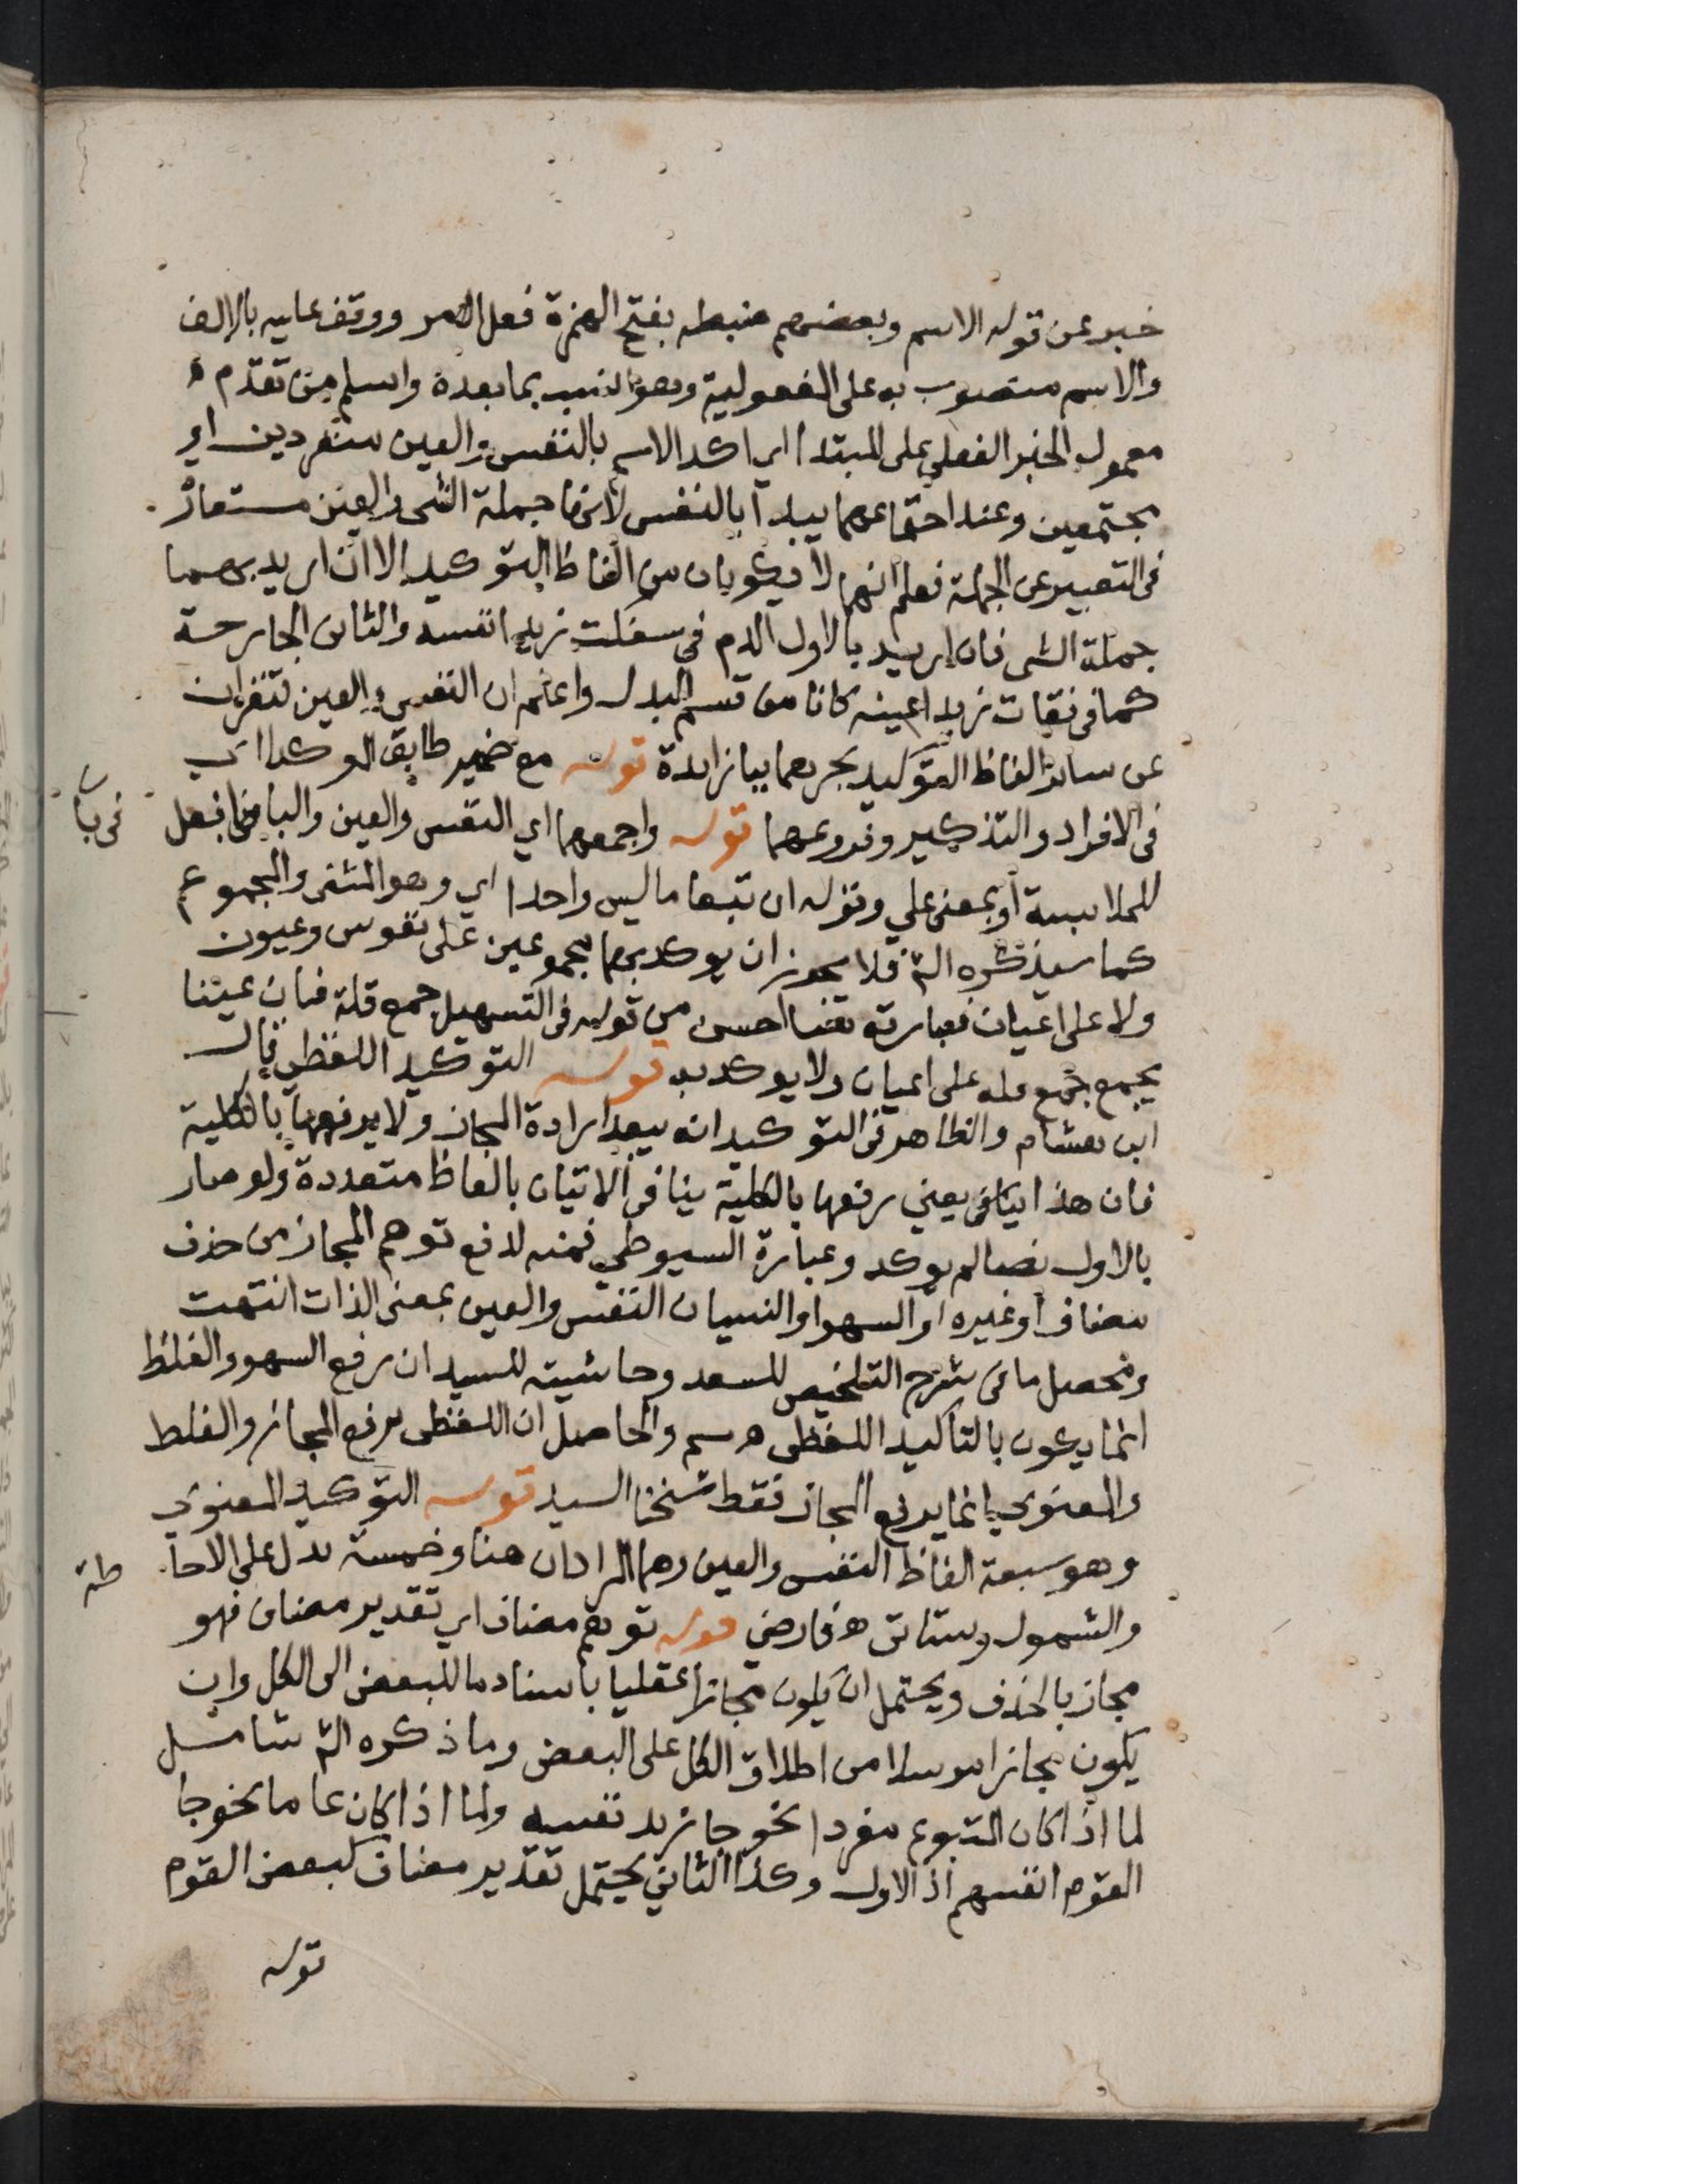 خبر عن قوله الاسم وبعضهم ضبطه بفتح الهمزة فعل امر ووقف عليه بالالف
والاسم منصوب به على المفعولية وهو انسب بما بعده واسلم من تقدم
معمول الخبر الفعلي على المبتدا اي اكد الاسم بالنفس والعين منفردين او
مجتمعين وعند اجتماعهما يبدا بالنفس لانها جملة الشى والعين مستعار
فى التعبير عن الجملة فعلم انهما لا يكونان من الفاظ التوكيد الا ان اريد بهما
جملة الشى فان اريد بالاول الدم في سفكت زيدا نفسه والثانى الجارحة
كما فى فقات زيدا عينه كانا من قسم البدل واعلم ان النفس والعين تنفردان
عن سائر الفاظ التوكيد بجرهما ببا زايدة قوله مع ضمير طابق الموكدا اي
فى الافراد والتذكير وفروعهما قوله واجمعهما اي النفس والعين والبا فى بافعل
للملابسة او بمعنى على وقوله ان تبعا ما ليس واحدا اي وهو المثنى والمجموع
كما سيذكره الش فلا يجوز ان يوكد بهما مجموعين على نفوس وعيون
ولا على اعيان فعبارته هنا احسن من قوله فى التسهيل جمع قلة فان عينا
يجمع جمع قله على اعيان ولا يوكد به قوله التوكيد اللفظي قال
ابن هشام والظاهر فى التوكيد انه يبعد ارادة المجاز ولا يرفعها بالكلية
فان هذا ينافى يعني رفعها بالكلية ينافى الاتيان بالفاظ متعددة ولو صار
بالاول نصا لم يوكد وعبارة السيوطي فمنه لدفع توهم المجاز من حذف
مضاف او غيره او السهو او النسيان النفس والعين بمعنى الذات انتهت
ومحصل ما فى شرح التلخيص للسعد وحاشيته للسيد ان رفع السهو والغلط
انما يكون بالتاكيد اللفظى هـ سم والحاصل ان اللفظى يرفع المجاز والغلط
والمعنوي انما يرفع المجاز فقط شيخنا السيد قوله التوكيد المعنوي
وهو سبعة الفاظ النفس والعين وهما المرادان هنا وخمسة تدل على الاحا طة
والشمول وستاتى هـ فارضي قوله توهم مضاف اي تقدير مضاف فهو
مجاز بالحذف ويحتمل ان يكون مجازا عقليا باسناد ما للبعض الى الكل وان
يكون مجازا مرسلا من اطلاق الكل على البعض وما ذكره الش شامل
لما اذا كان المتبوع مفردا نحو جا زيد نفسه ولما اذا كان عاما نحو جا
القوم انفسهم اذ الاول وكذا الثاني يحتمل تقدير مضاف كبعض القوم
قوله